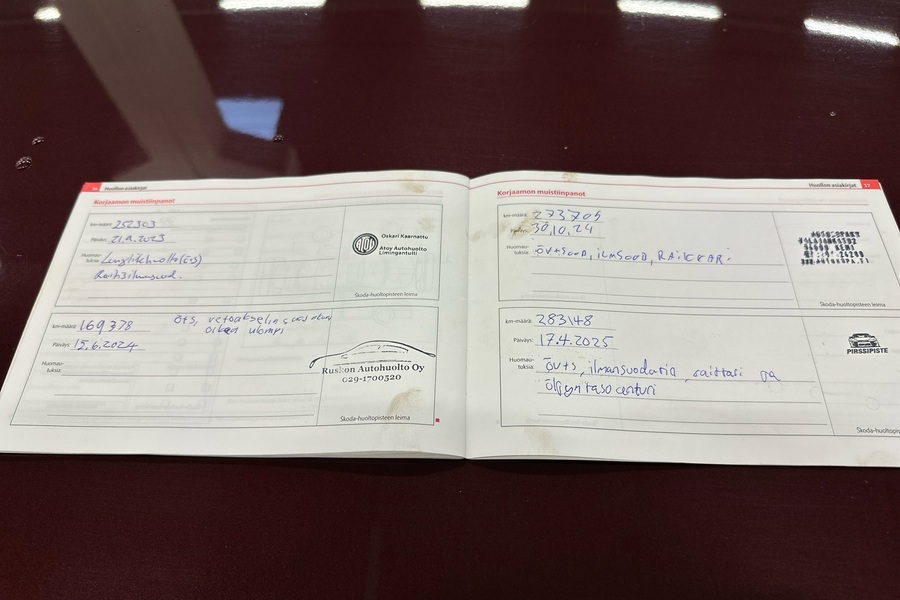 36 Huollon asiakirjat
Korjaamon muistiinpanot
km-määrä: 252303
Päiväys: 21.9.2023
Huomau-
tuksia: Longlifehuolto(ö+s)
Raitisilmasuod.
Oskari Kaarnattu
ATOY
Atoy Autohuolto
Limingantulli
Skoda-huoltopisteen leima
km-määrä: 169378
öts, vetoakselin
oikea ulompi
Päiväys: 15.6.2024
Huomau-
tuksia:
Ruskon Autohuolto Oy
029-1700520
Skoda-huoltopisteen leima
Huollon asiakirjat 37
Korjaamon muistiinpanot
km-määrä: 273705
Päiväys: 30.10.24
Huomau-
tuksia: ÖV+SUOD, ILMSOOD, RAIKKAR.
Skoda-huoltopisteen leima
km-määrä: 283148
Päiväys: 17.4.2025
Huomau-
tuksia: öv+s, ilmansuodatin, raittari ja
öljyn taso anturi
PIRSSIPISTE
Skoda-huoltopis